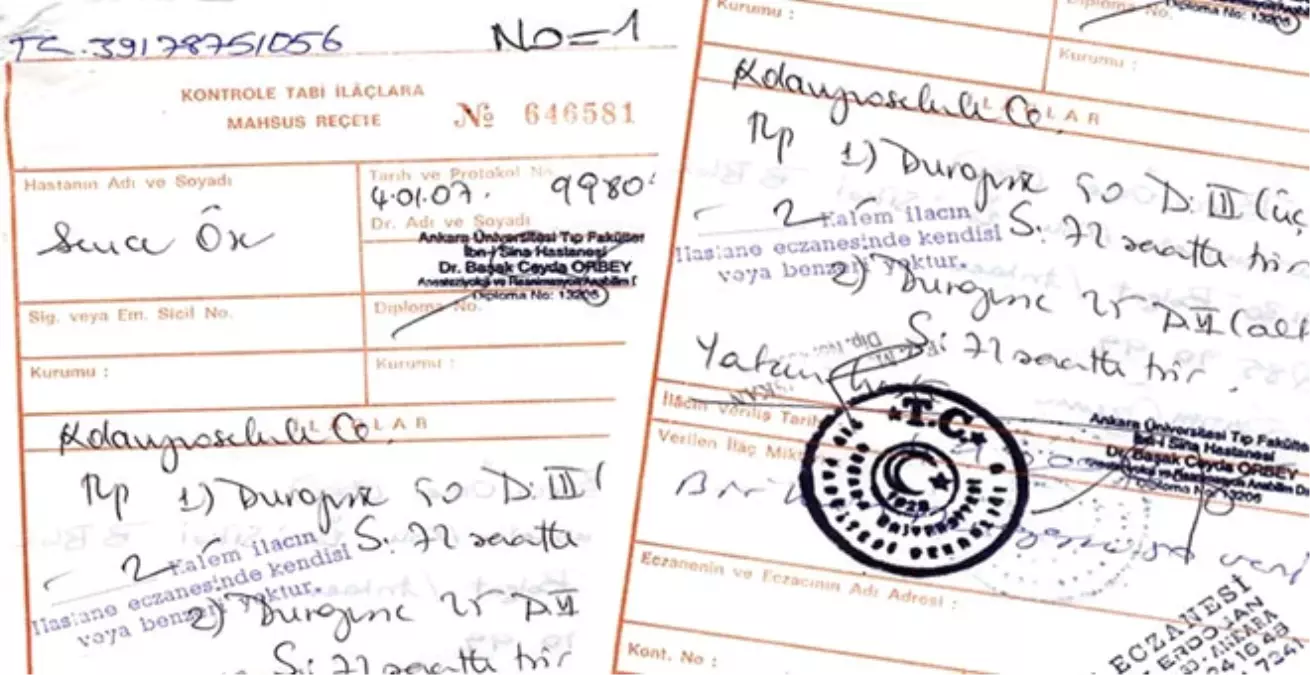 TC. 39178751056 No=1
KONTROLE TABİ İLÂÇLARA
MAHSUS REÇETE
№ 646581
Hastanın Adı ve Soyadı
Tarih ve Protokol No.
4.01.07. 9980
Dr. Adı ve Soyadı
Ankara Üniversitesi Tıp Fakültesi
İbn-i Sina Hastanesi
Dr. Başak Ceyda ORBEY
Anesteziyoloji ve Reanimasyon Anabilim D
Diploma No: 13206
Sig. veya Em. Sicil No.
Diploma No.
Kurumu :
Kurumu :
LAR
Rp 1) Durogesic 50 D.III (
S: 72 saatte
2 Kalem ilacın
Hastane eczanesinde kendisi
veya benzeri yoktur.
2) Durogesic 25 D.VI
S: 72 saatte bir
Kurumu :
Diploma No.
Diploma No: 13206
Kurumu :
LAR
Rp 1) Durogesic 50 D.III (üç
S: 72 saatte bir
2 Kalem ilacın
Hastane eczanesinde kendisi
veya benzeri yoktur.
2) Durogesic 25 D.VI (alt
S: 72 saatte bir.
Yatan
Dip. No:
KAN
İlâcın Veriliş Tarihi
Verilen İlaç Mik
T.C.
1925
Ankara Üniversitesi
TIP FAKÜLTESİ DEKANLIĞI
Ankara Üniversitesi Tıp Fakülte
İbn-i Sina Hastanesi
Dr. Başak Ceyda ORBEY
Anesteziyoloji ve Reanimasyon Anabilim D
Diploma No: 13206
Eczanenin ve Eczacının Adı Adresi :
ECZANESİ
ERDOĞAN
ANKARA
24 16 48
7241
Kont. No :